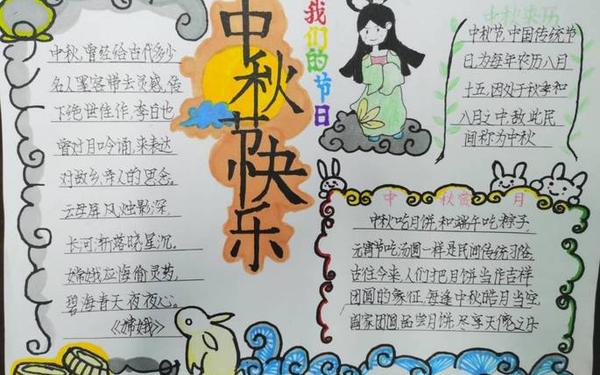 中秋,曾经给古代多少
名人墨客带去灵感,传
下绝世佳作,李白也
曾对月吟诵,来表达
对故乡,亲人的思念。
云母屏风烛影深,
长河渐落晓星沉。
嫦娥应悔偷灵药,
碧海青天夜夜心。
《嫦娥》
中秋节快乐
我们的节日
中秋来历
中秋节,中国传统节
日为每年农历八月
十五,因处于秋季和
八月之中,故此民
间称为中秋
中 秋 赏 月
中秋吃月饼,和端午吃粽子,
元宵节吃汤圆一样是民间传统习俗,
古往今来,人们把月饼当作吉祥
团圆的象征,每逢中秋皓月当空
阖家团圆品尝月饼,尽享天伦之乐